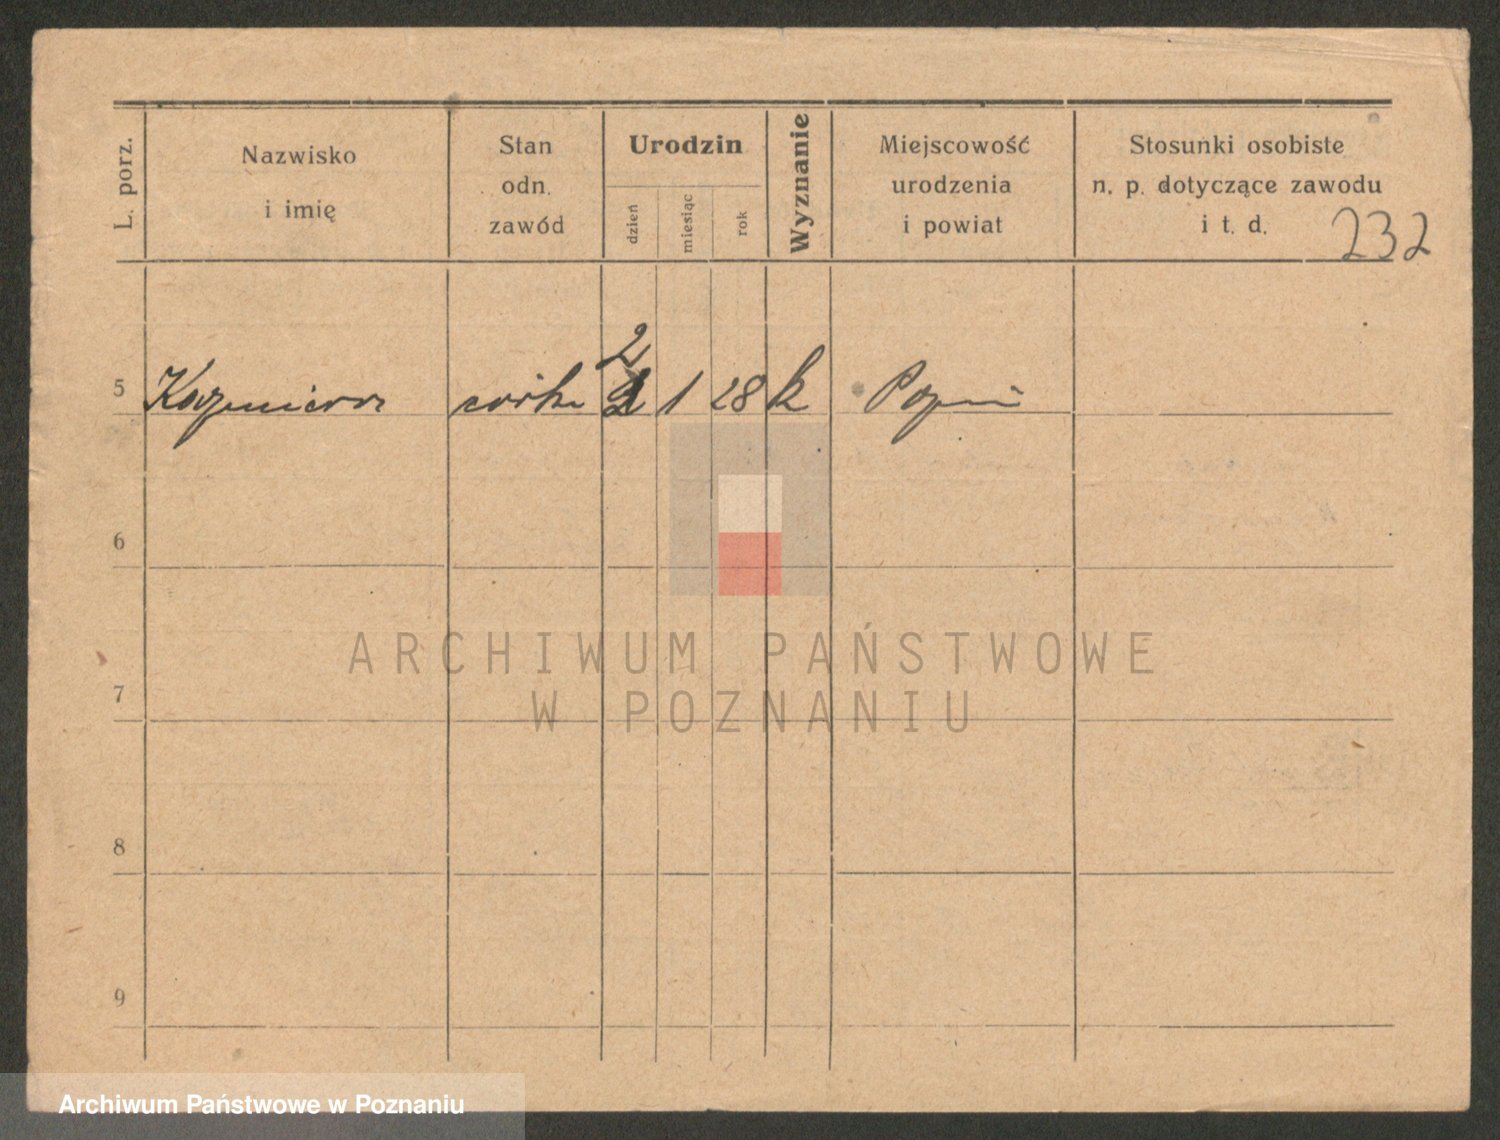 L. porz.
Nazwisko
i imię
Stan
odn.
zawód
Urodzin
dzień
miesiąc
rok
Wyznanie
Miejscowość
urodzenia
i powiat
Stosunki osobiste
n. p. dotyczące zawodu
i t. d.
232
2
5 Kazimiera córka 1 28 k
6
7
8
9
ARCHIWUM PAŃSTWOWE
W POZNANIU
Archiwum Państwowe w Poznaniu